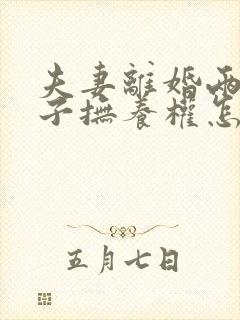 夫妻離婚兩
子撫養權怎
五月七日